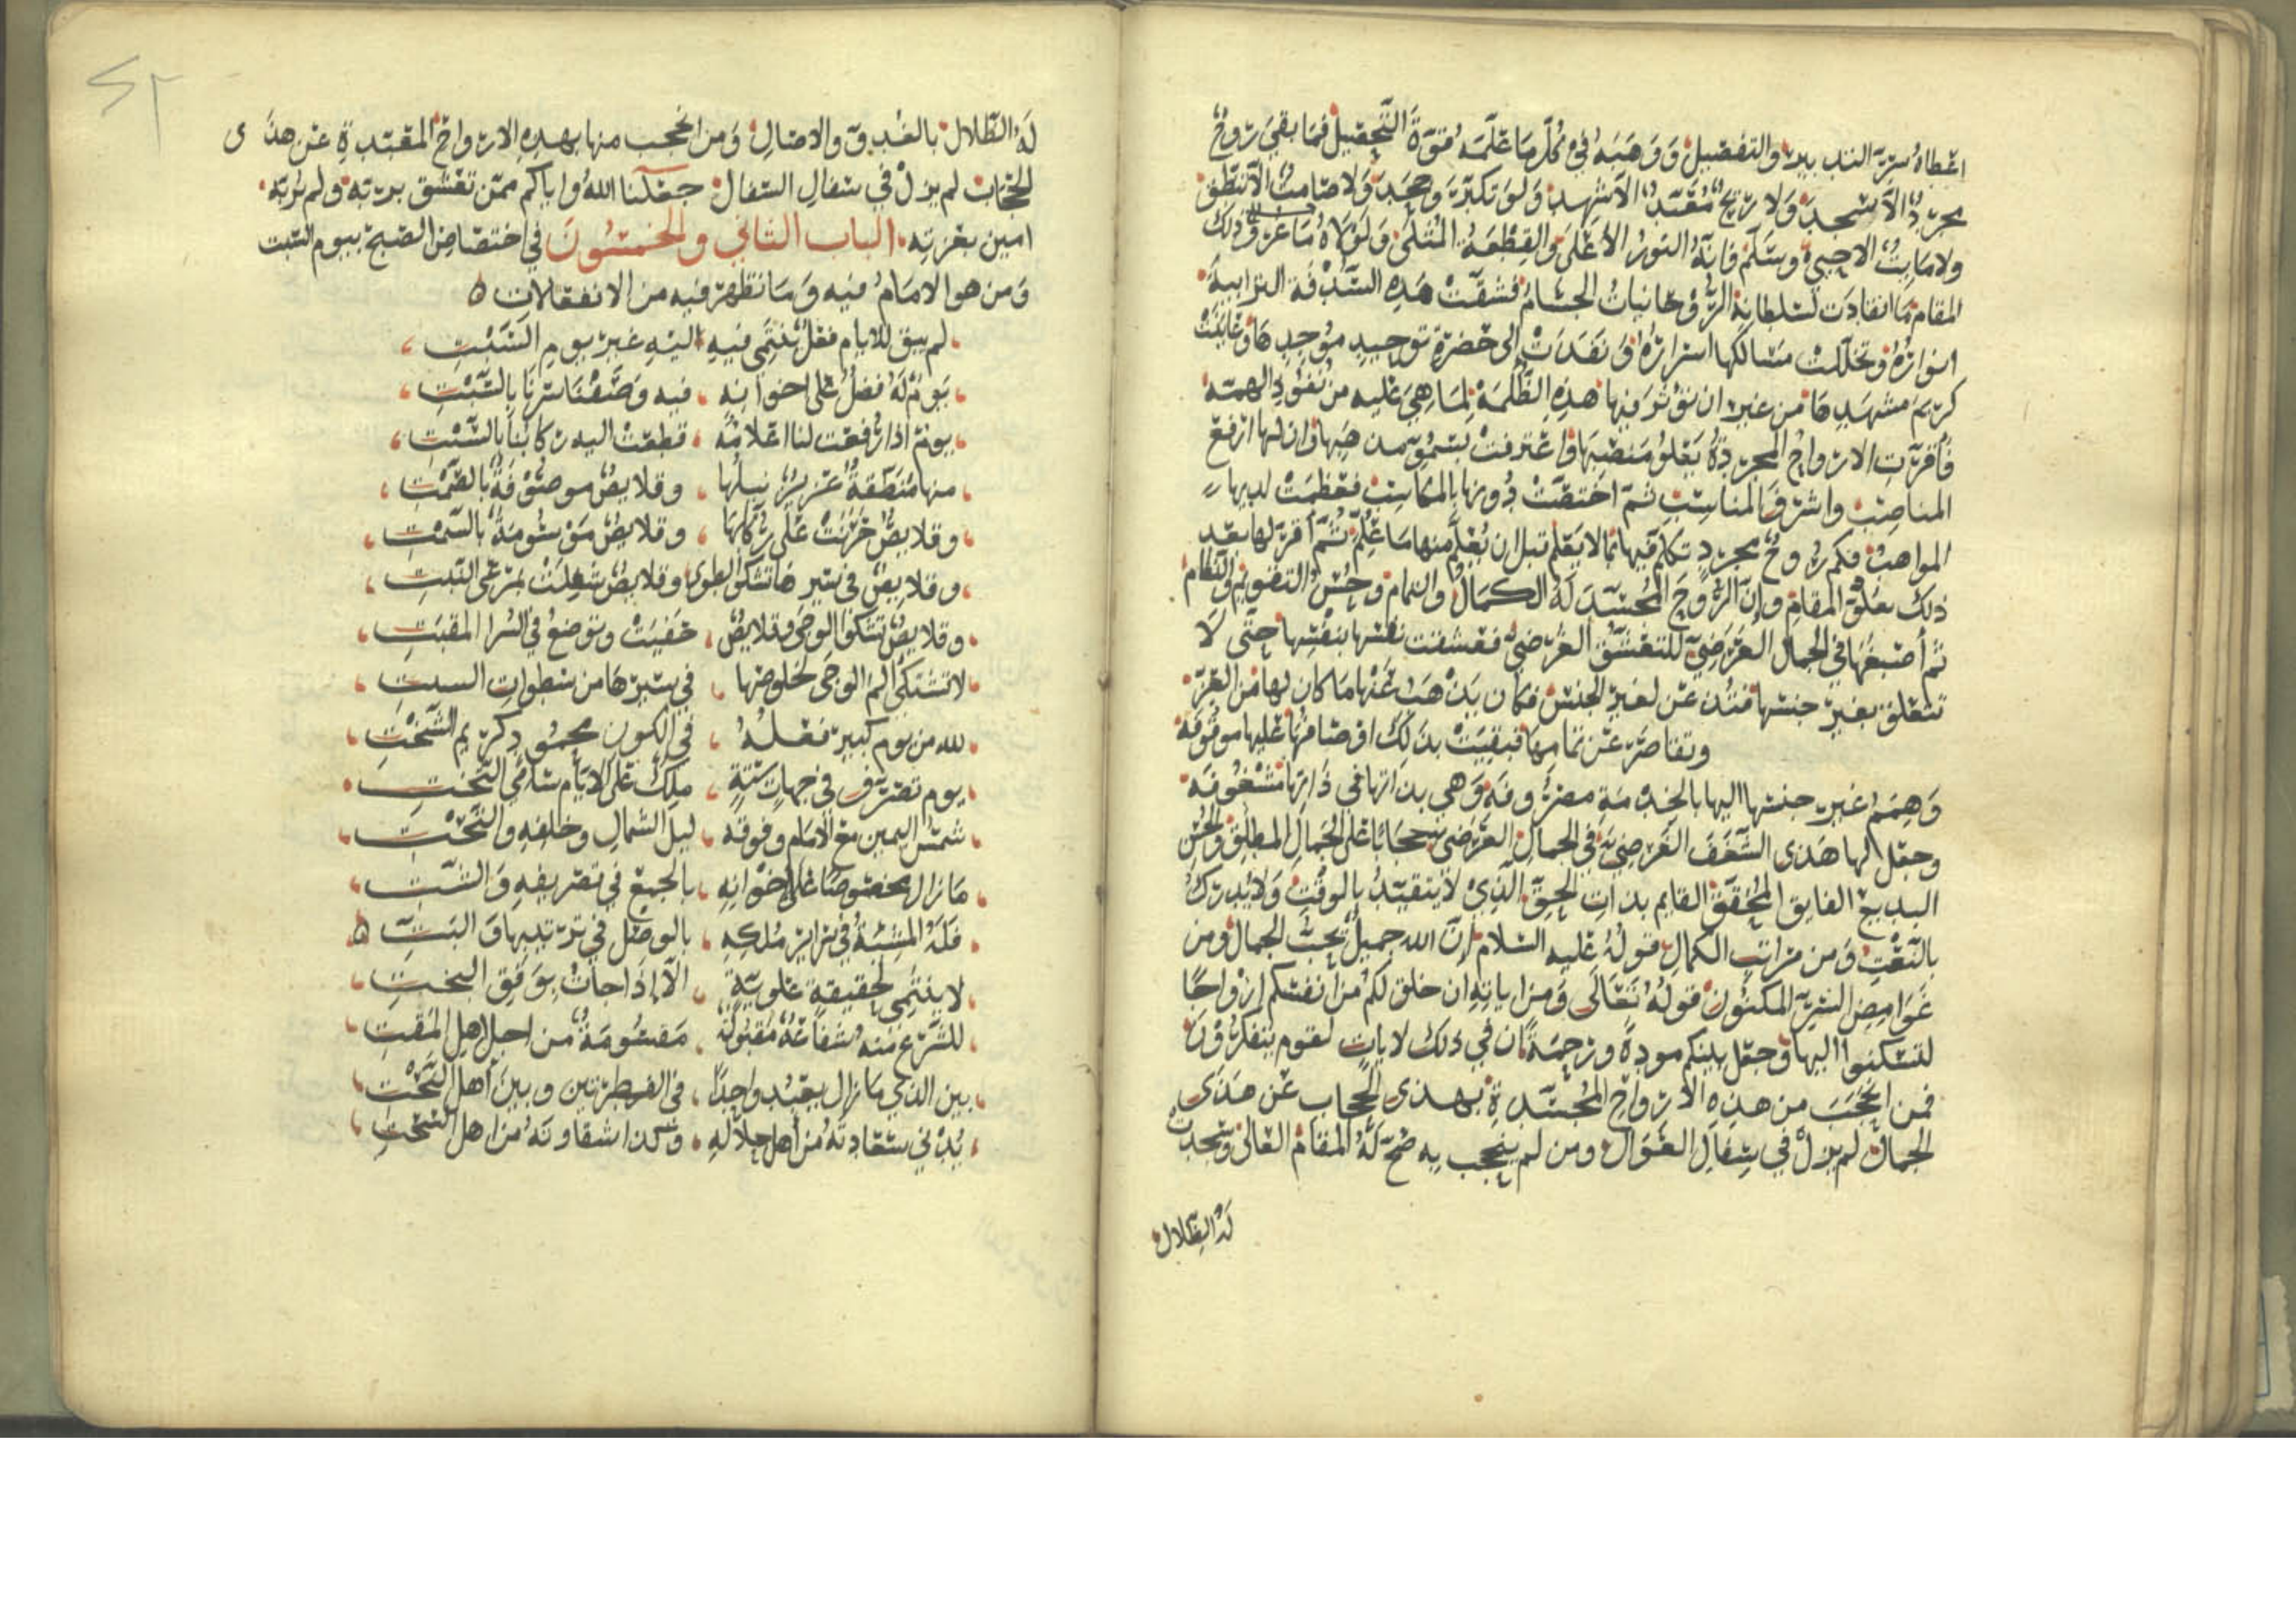 اعطاه سر التدبير والتفصيل ووهبه في كل ما علمه قوة التحصيل فما بقي روح
مجرد الا سجد ولا ريح مقيد الا شهد ولو تكبر وجحد ولا صامت الا نطق
ولا مايت الا حيي وسلم فانه النور الأعلى والقطعة المثلى ولولاه ما عرف ذلك
المقام ما انقادت لسلطانه الروحانيات الجسام فشقت هذه السدفة الترابية
انواره وتخللت مسالكها اسراره ونفدت الى حضرة توحيد موجدها وعاينت
كريم مشهدها من غير ان تؤثر فيها هذه الظلمة لما هي عليه من نفود الهمة
فأقرت الارواح المجردة بعلو منصبها واعترفت بسمو مذهبها وان لها ارفع
المناصب واشرف المناسب ثم اختصت دونها بالمكاسب فعظمت لديها
المواهب فكم روح مجرد تكلم فيها بما لا يعلم قبل ان يعلم منها ما علم ثم أقر لها بعد
ذلك بعلو المقام وإن الروح المجسد له الكمال والتمام وحسن التقويم والنظام
ثم أصبغها في الجمال العرضي للتعشق العرضي فعشقت نفسها بنفسها حتى لا
تتعلق بغير جنسها فتدعن لغير الجنس فكان يذهب عنها ما كان لها من العز
وتقاصر عن تمامها فبقيت بذلك اوصامها عليها موقوفة
وهمم غير جنسها اليها بالخدمة مصروفة وهي بذاتها في ذاتها مشغوفة
وجعل لها هذى الشغف العرضي في الجمال العرضي حجابا على الجمال المطلق والحسن
البديع الفايق المحقق القايم بذات الحق الذي لا يتقيد بالوقت ولا يدرك
بالنعت ومن مراتب الكمال قوله عليه السلام إن الله جميل يحب الجمال ومن
غوامض السر المكنون قوله تعالى ومن اياته ان خلق لكم من انفسكم ازواجا
لتسكنوا اليها وجعل بينكم مودة ورحمة ان في ذلك لايات لقوم يتفكرون
فمن انحجب من هذه الارواح المجسدة بهذى الحجاب عن هذى
الجمال لم يزل في سفال العوال ومن لم ينحجب به صح له المقام العالى وسجدت
له الظلال
له الظلال بالغدو والاصال ومن انحجب منها بهذه الارواح المقيدة عن هذى
الجناب لم يزل في سفال السفال جعلنا الله واياكم ممن تعشق بربه ولم
امين بعزته الباب الثاني والخمسون في اختصاص الصبح بيوم السبت
ومن هو الامام فيه وما تظهر فيه من الانفعالات
لم يبق للايام فعل ينتمى فيه اليه غير يوم السبت
يوم له فضل على اخوانه فيه وصفنا سرنا بالسبت
يوم اذا رفعت لنا اعلامه قطعت اليه ركابنا بالسبت
منها منطقة عزيز نيلها وقلايص موصوفة بالصمت
وقلايص حزنت على ركابها وقلايص موسومة بالسمت
وقلايص في سيرها تشكو الطوى وقلايص شغلت بمرعى النبت
وقلايص تشكو الوجى وقلايص خفيت وتوضع في السرا المقبت
لا تشتكي الم الوجى لخلوصها في سيرها من سطوات السبت
لله من يوم كبير فعله في الكون محمود كريم السحت
يوم تصرف في جهات ستة ملك على الايام سامي التخت
شمس اليمين مع الامام وفوقه ليل الشمال وخلفه والتحت
ما زال مخصوصا على اخوانه بالجمع في تصريفه والشت
فله المشية في سراير ملكه بالوصل في ترتيبها والبت
لا ينتمى لحقيقة علوية الا إذا جات بوفق البخت
للشرع منه شفاعة مقبولة مقسومة من اجل اهل المقت
بين الذي ما زال يعبد واحدا في الفطرتين وبين أهل النحت
يدنى سعادته من أهل جلاله وكذا شقاوته من اهل السحت